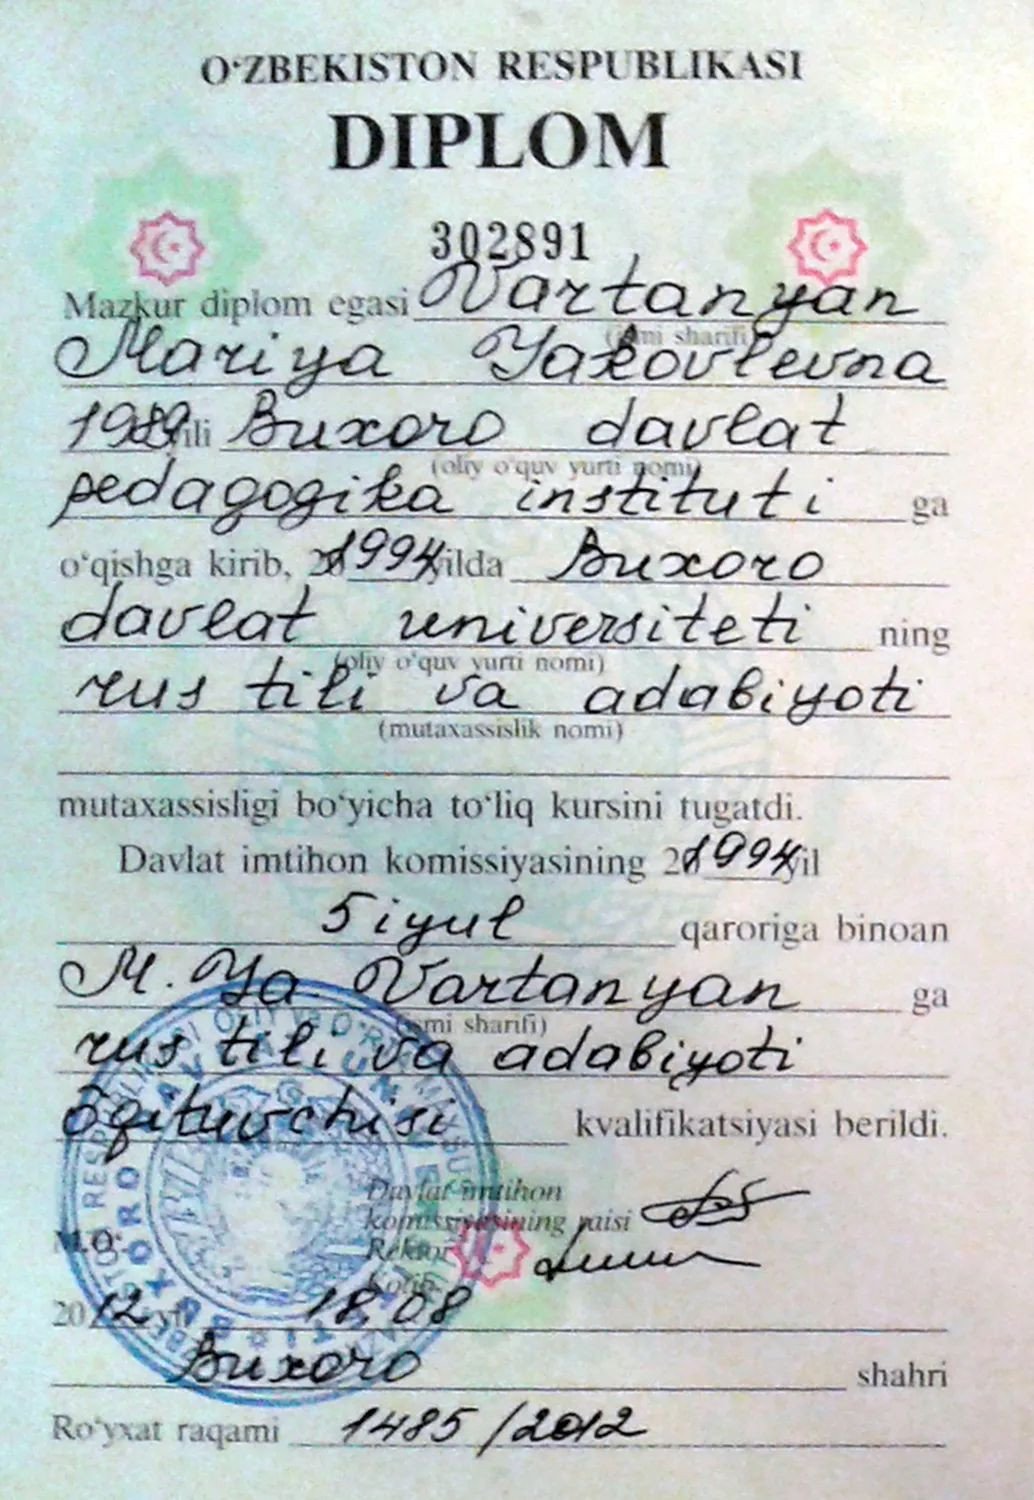 O‘ZBEKISTON RESPUBLIKASI
DIPLOM
302891
Mazkur diplom egasi Vartanyan
(ismi sharifi)
Mariya Yakovlevna
1989 yili Buxoro davlat
(oliy o‘quv yurti nomi)
pedagogika instituti ga
o‘qishga kirib, 20 1994 yilda Buxoro
davlat universiteti ning
(oliy o‘quv yurti nomi)
rus tili va adabiyoti
(mutaxassislik nomi)
mutaxassisligi bo‘yicha to‘liq kursini tugatdi.
Davlat imtihon komissiyasining 20 1994 yil
5 iyul qaroriga binoan
M. Ya Vartanyan ga
(ismi sharifi)
rus tili va adabiyoti
õqituvchisi kvalifikatsiyasi berildi.
Davlat imtihon
komissiyasining raisi
M.O‘.
Rektor
Kotib
2012 yil 18.08
Buxoro shahri
Ro‘yxat raqami 1485/2012